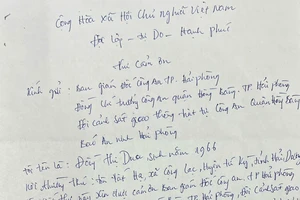 Cộng Hòa Xã Hội Chủ nghĩa Việt Nam
Độc lập - Tự Do - Hạnh phúc
Thư Cảm ơn
Kính gửi: Ban giám đốc Công An TP. Hải phòng
Đồng chí trưởng công an quận Hồng Bàng. TP Hải phòng
Đội cảnh sát giao thông trật tự Công An Quận Hồng Bàng
Báo An ninh Hải phòng
Tôi tên là: Đồng Thị Dưa sinh năm 1966
xã Cộng Lạc, huyện tứ kỳ, tỉnh Hải Dương
xin được cảm ơn Ban giám đốc công an. TP Hải phòng